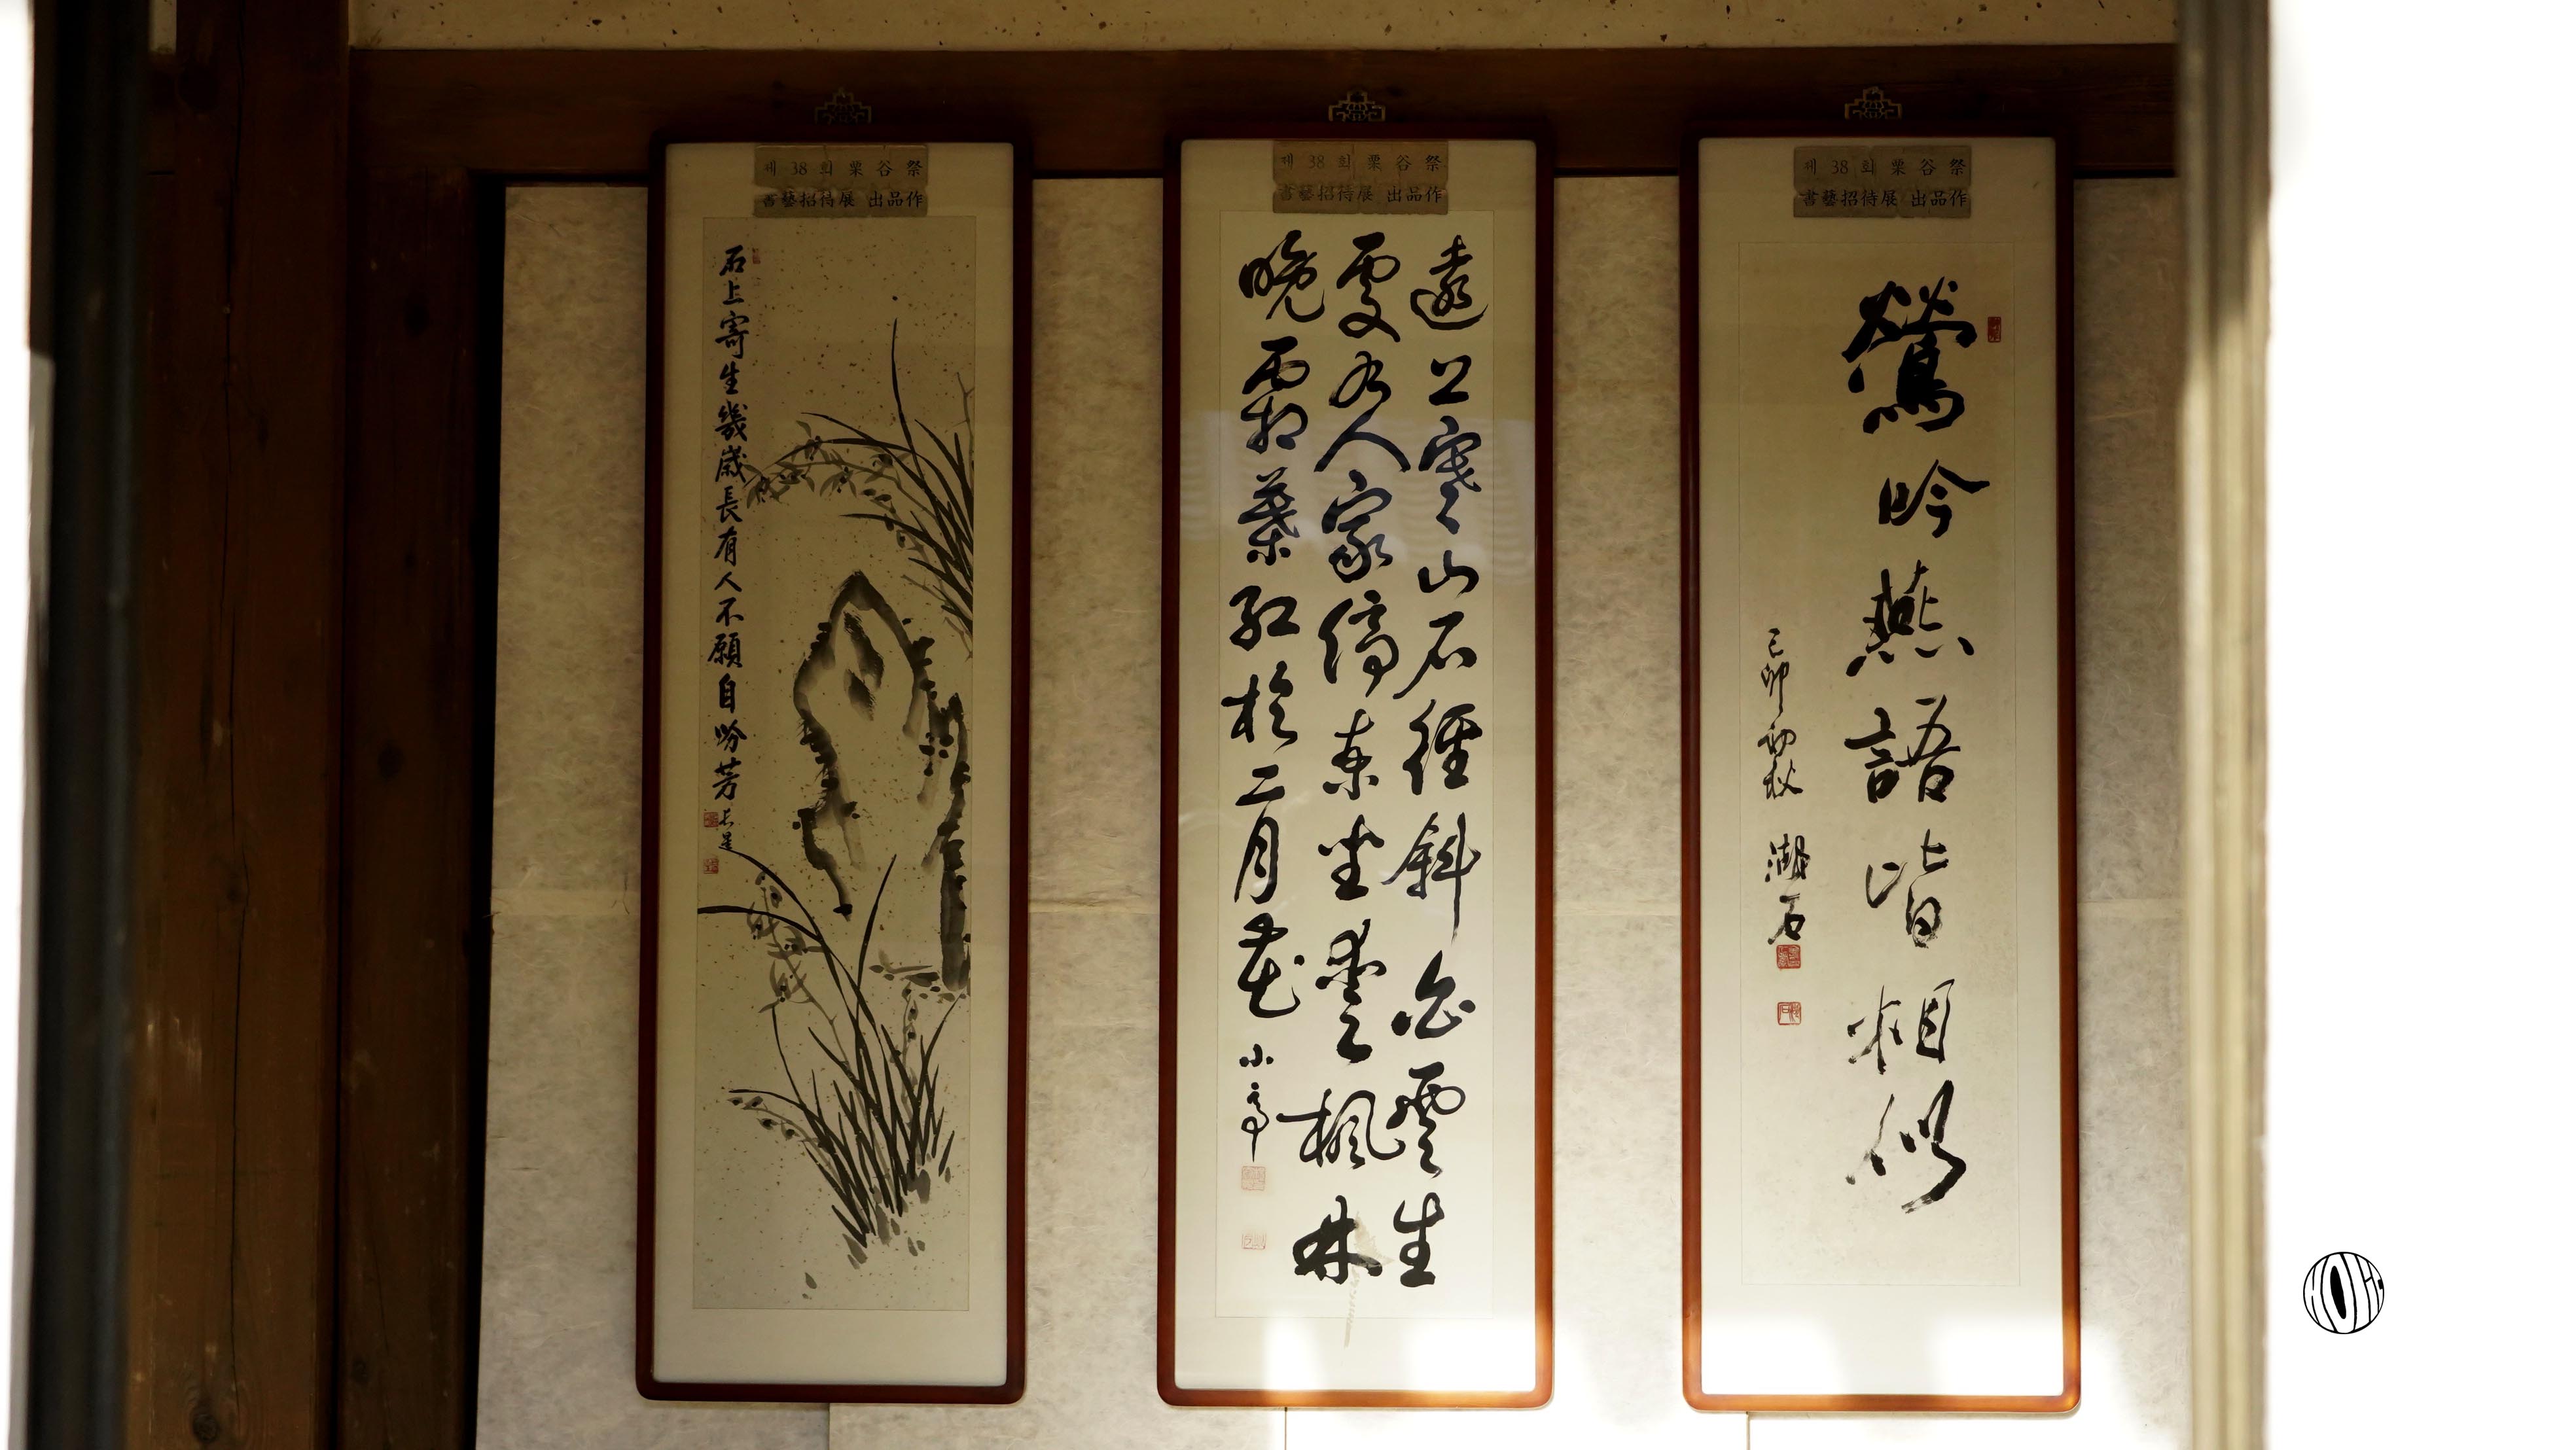 제 38 회 栗 谷 祭
書藝招待展 出品作
石上寄生幾歲長有人不願自吩芳
제 38 회 栗 谷 祭
書藝招待展 出品作
遠上寒々山石徑斜白雲生
處有人家停車坐愛々楓林
晚霜葉紅於二月花 小亭
제 38 회 栗 谷 祭
書藝招待展 出品作
鶯吟燕語皆相似
己卯初秋 湖石